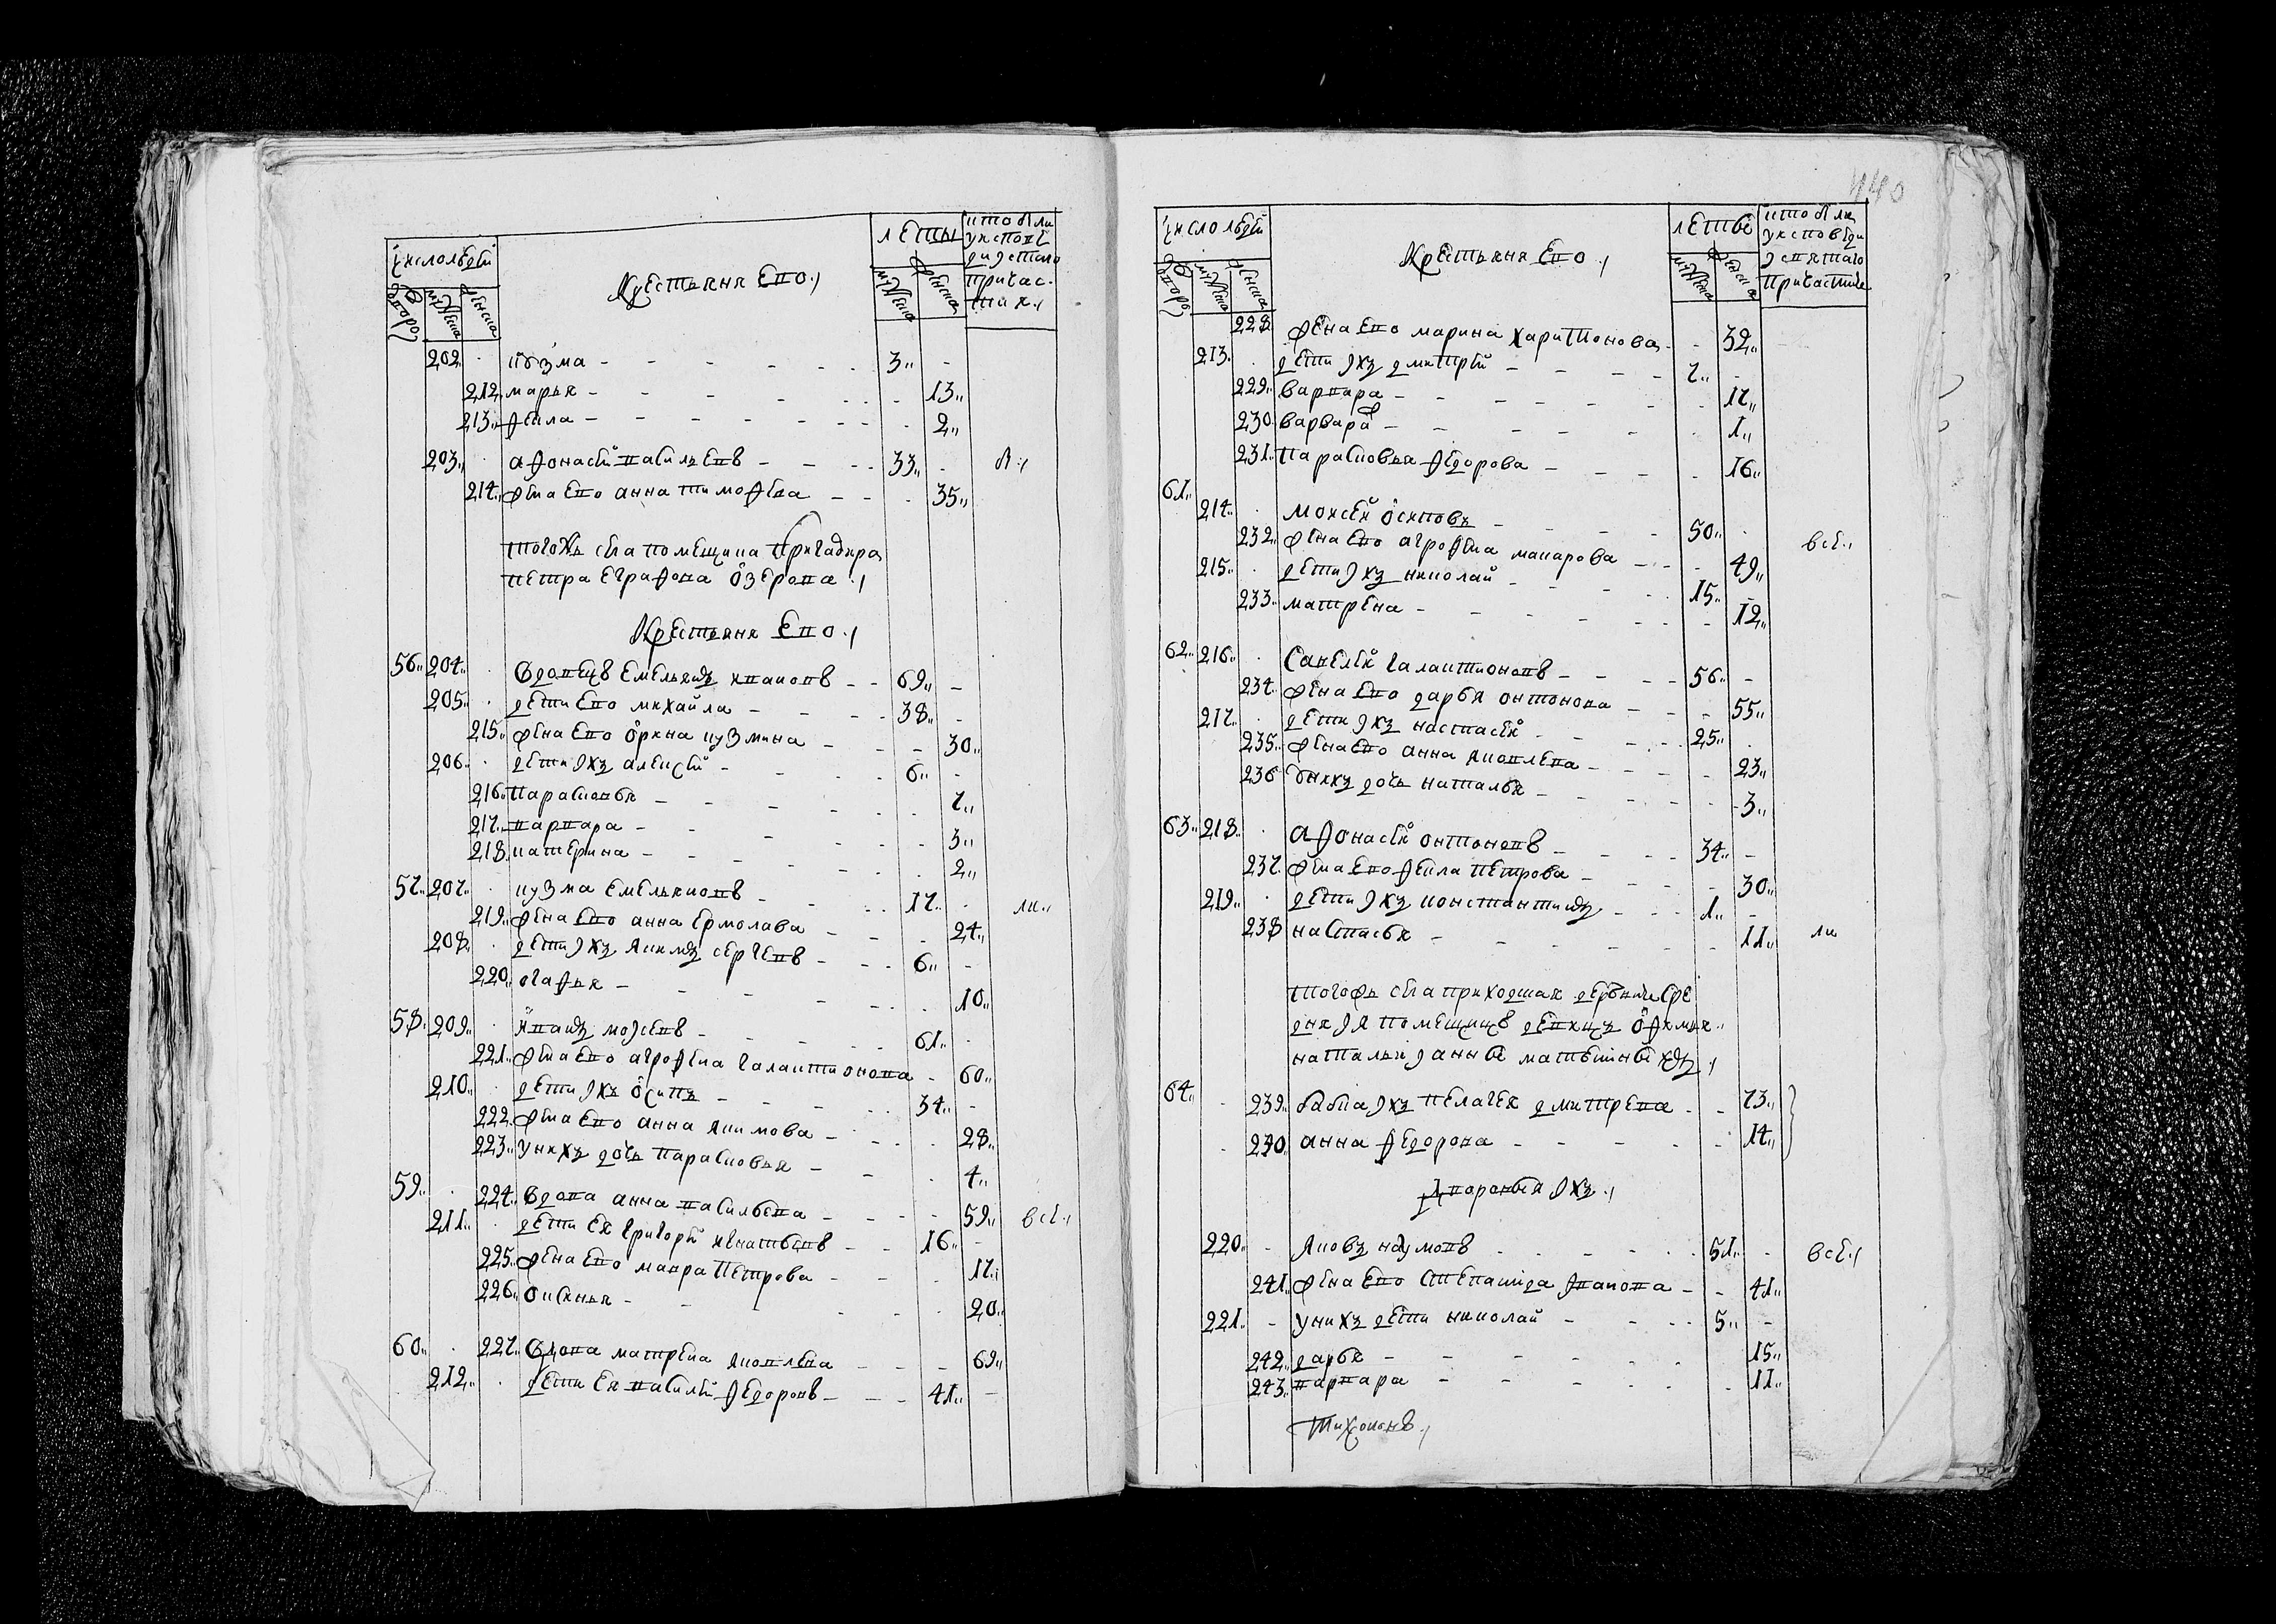 число людей | Крестьяня ево | леты | кто был у исповеди и святаго причастия
дворо | мужеска | женска | мужеска | женска
202 кузма - 3
212 марья - 13
213 фекла - 2
203 афонасей василь евъ - 33
214 жена ево анна тимофева - 35
тогожъ села помещика бригадира
петра еграфова озерова
Крестьяня ево
56 204 вдовецъ емельянъ иванов - 69
205 дети ево михайла - 38
215 жена ево орина кузмина - 30
206 дети ихъ алексей - 6
216 парасковья - 7
217 варвара - 3
218 катерина - 2
57 207 кузма емельяновъ - 17
219 жена ево анна ермолава - 24
208 дети ихъ якимъ сергеевъ - 6
220 огафья - 10
58 209 иванъ мосеевъ - 61
221 жена ево агрофена галактионова - 60
210 дети ихъ осипъ - 34
222 жена ево анна якимова - 28
223 у нихъ дочь парасковья - 4
59 224 вдова анна васильева - 59 все
211 дети ея григорей игнатьевъ - 16
225 жена ево мавра петрова - 17
226 оксинья - 20
60 227 вдова матрена яковлева - 69
212 дети ея василей федоровъ - 41
440
число людей | Крестьяня ево | леты | кто был у исповеди и святаго причастия
дворо | мужеска | женска | мужеска | женска
228 жена ево марина харитонова - 32
213 дети ихъ дмитрей - 7
229 варвара - 17
230 варвара - 1
231 парасковья федорова - 16
61 214 моисей осиповъ - 50 все
232 жена ево агрофена макарова - 49
215 дети ихъ николай - 15
233 матрена - 12
62 216 савелей галактионовъ - 56
234 жена ево дарья онтонова - 55
217 дети ихъ настасей - 25
235 жена ево анна яковлева - 23
236 у нихъ дочь наталья - 3
63 218 афонасей онтоновъ - 34
237 жена ево фекла петрова - 30
219 дети ихъ константинъ - 1
238 настасья - 11
тогожъ села приходшая деревни сре
дняя помещицъ девицъ офимьи
натальи и анны
64 239 бабка ихъ пелагея дмитрева - 73
240 анна федорова - 14
Дворовыя ихъ
220 яковъ наумовъ - 51 все
241 жена ево степанида иванова - 41
221 у нихъ дети николай - 5
242 дарья - 15
243 варвара - 11
тихоновъ